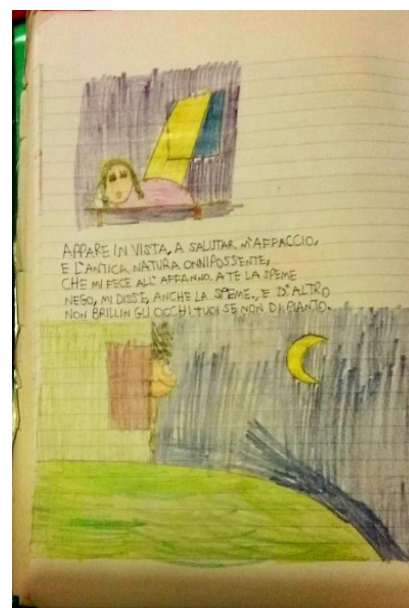 APPARE IN VISTA, A SALUTAR M'AFFACCIO,
E L'ANTICA NATURA ONNIPOSSENTE,
CHE MI FECE ALL'AFFANNO. A TE LA SPEME
NEGO, MI DISSE, ANCHE LA SPEME, E D'ALTRO
NON BRILLIN GLI OCCHI TUOI SE NON DI PIANTO.